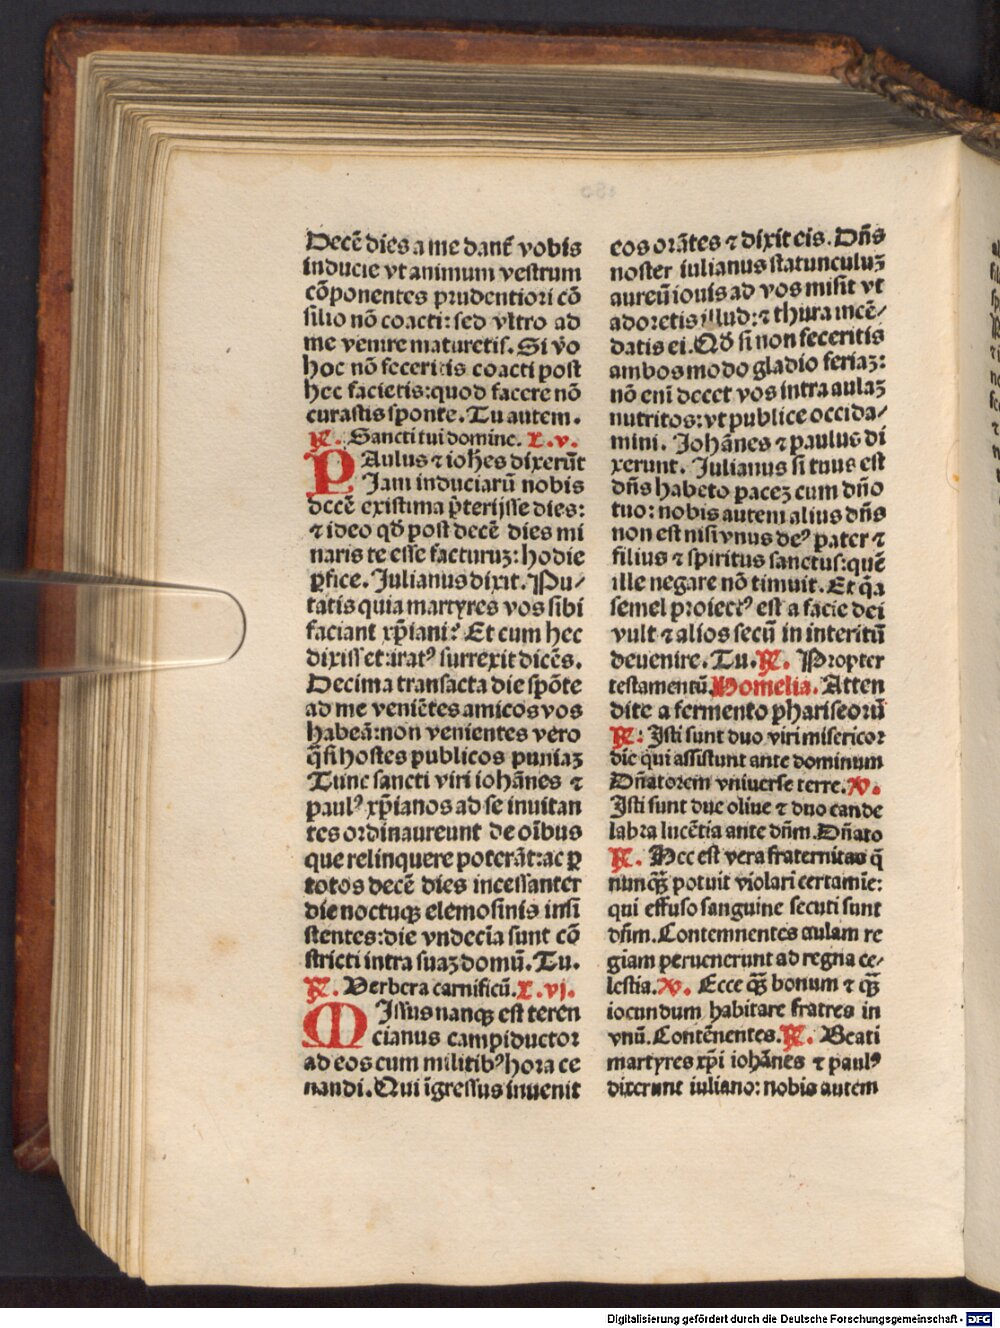 Decē dies a me danť vobis
inducie vt animum vestrum
cōponentes prudentiori cō
silio nō coacti: sed vltro ad
me venire maturetis. Si v̄o
hoc nō feceritis coacti post
hec facietis: quod facere nō
curastis sponte. Tu autem.
℟. Sancti tui domine. L. v.
PAulus ⁊ ioh̄es dixerūt
Jam induciarū nobis
decē existima p̄terijsse dies:
⁊ ideo qđ post decē dies mi
naris te esse facturuꝫ: hodie
ꝑfice. Julianus dixit. Pu⸗
tatis quia martyres vos sibi
faciant xp̄iani? Et cum hec
dixisset: iratꝰ surrexit dicēs.
Decima transacta die spōte
ad me veniētes amicos vos
habeā: non venientes vero
q̄si hostes publicos puniaꝫ
Tunc sancti viri iohānes ⁊
paulꝰ xp̄ianos ad se inuitan
tes ordinauerunt de oībus
que relinquere poterāt: ac ꝑ
totos decē dies incessanter
die noctuqꝫ elemosinis insi
stentes: die vndecīa sunt cō
stricti intra suaꝫ domū. Tu.
℟. Verbera carnificū. L. vj.
MIssus nanqꝫ est teren
cianus campiductor
ad eos cum militibꝰ hora ce
nandi. Qui īgressus inuenit
eos orātes ⁊ dixit eis. Dn̄s
noster iulianus statunculuꝫ
aureū iouis ad vos misit vt
adoretis illud: ⁊ thura incē⸗
datis ei. Qđ si non feceritis
ambos modo gladio feriaꝫ:
nō eni decet vos intra aulaꝫ
nutritos: vt publice occida⸗
mini. Johānes ⁊ paulus di
xerunt. Julianus si tuus est
dn̄s habeto paceꝫ cum dn̄o
tuo: nobis autem alius dn̄s
non est nisi vnus deꝰ pater ⁊
filius ⁊ spiritus sanctus: quē
ille negare nō timuit. Et q̄a
semel proiectꝰ est a facie dei
vult ⁊ alios secū in interitū
deuenire. Tu. ℟. Propter
testamentū. Homelia. Atten
dite a fermento phariseorū
℟: Isti sunt duo viri misericor
die qui assistunt ante dominum
Dn̄atorem vniuerse terre. ℣.
Isti sunt due oliue ⁊ duo cande
labra lucētia ante dn̄m. Dn̄ato
℟. Hec est vera fraternitas q̄
nunqꝫ̄ potuit violari certamīe:
qui effuso sanguine secuti sunt
dn̄m. Contemnentes aulam re
giam peruenerunt ad regna ce⸗
lestia. ℣. Ecce qꝫ̄ bonum ⁊ qꝫ̄
iocundum habitare fratres in
vnū. Contēnentes. ℟. Beati
martyres xp̄i iohānes ⁊ paulꝰ
dixerunt iuliano: nobis autem
Digitalisierung gefördert durch die Deutsche Forschungsgemeinschaft - DFG